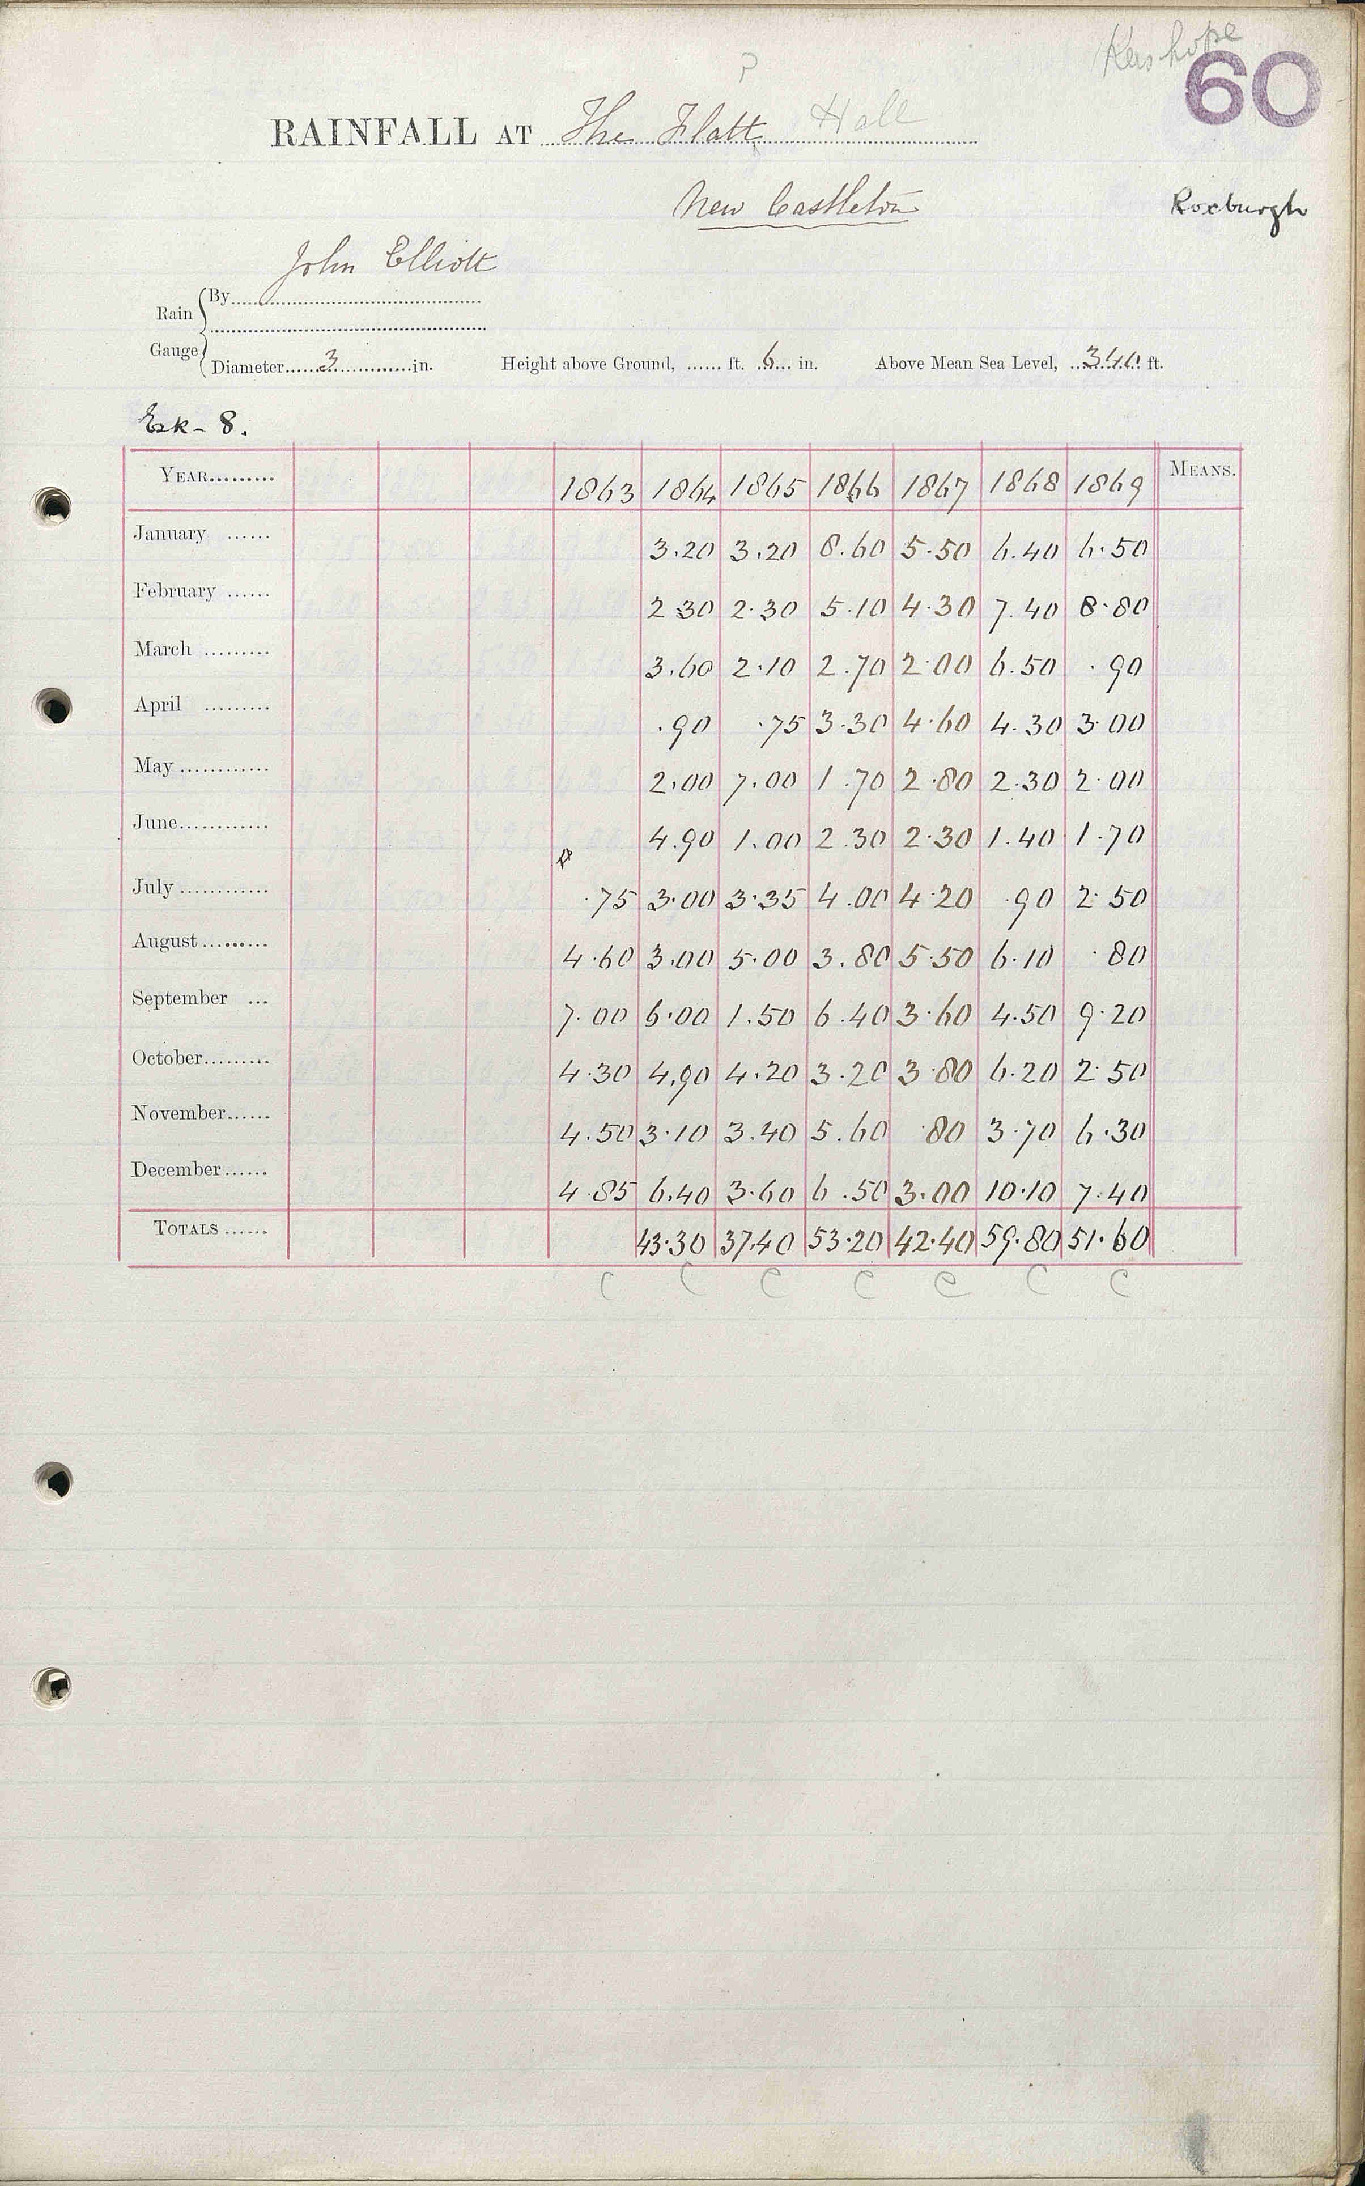 Kershope
60
RAINFALL AT The Flatt Hall
New Castleton
Roxburgh
John Elliott
Rain Gauge { By
Diameter 3 in. Height above Ground, ...... ft. 6 in. Above Mean Sea Level, 340 ft.
Esk - 8.
YEAR......... 1863 1864 1865 1866 1867 1868 1869 MEANS.
January ...... 3.20 3.20 8.60 5.50 6.40 6.50
February ...... 2 30 2.30 5.10 4.30 7.40 8.80
March ......... 3.60 2.10 2.70 2.00 6.50 .90
April ......... .90 .75 3.30 4.60 4.30 3.00
May ............ 2.00 7.00 1.70 2.80 2.30 2.00
June............ 4.90 1.00 2.30 2.30 1.40 1.70
July ............ .75 3.00 3.35 4.00 4.20 .90 2.50
August ......... 4.60 3.00 5.00 3.80 5.50 6.10 .80
September ... 7.00 6.00 1.50 6.40 3.60 4.50 9.20
October......... 4.30 4.90 4.20 3.20 3.80 6.20 2.50
November...... 4.50 3.10 3.40 5.60 .80 3.70 6.30
December...... 4.85 6.40 3.60 6.50 3.00 10.10 7.40
TOTALS ...... 43.30 37.40 53.20 42.40 59.80 51.60
C C C C C C C